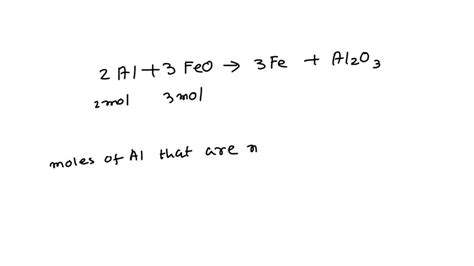 2 Al + 3 FeO → 3 Fe + Al₂O₃
2 mol 3 mol
moles of Al that are